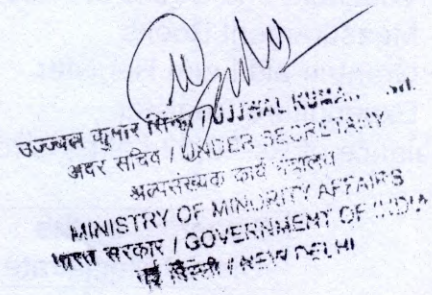 उज्ज्वल कुमार सिन्हा / UJJWAL KUMA
अवर सचिव / UNDER SECRETARY
अल्पसंख्यक कार्य मंत्रालय
MINISTRY OF MINORITY AFFAIRS
भारत सरकार / GOVERNMENT OF INDIA
नई दिल्ली / NEW DELHI